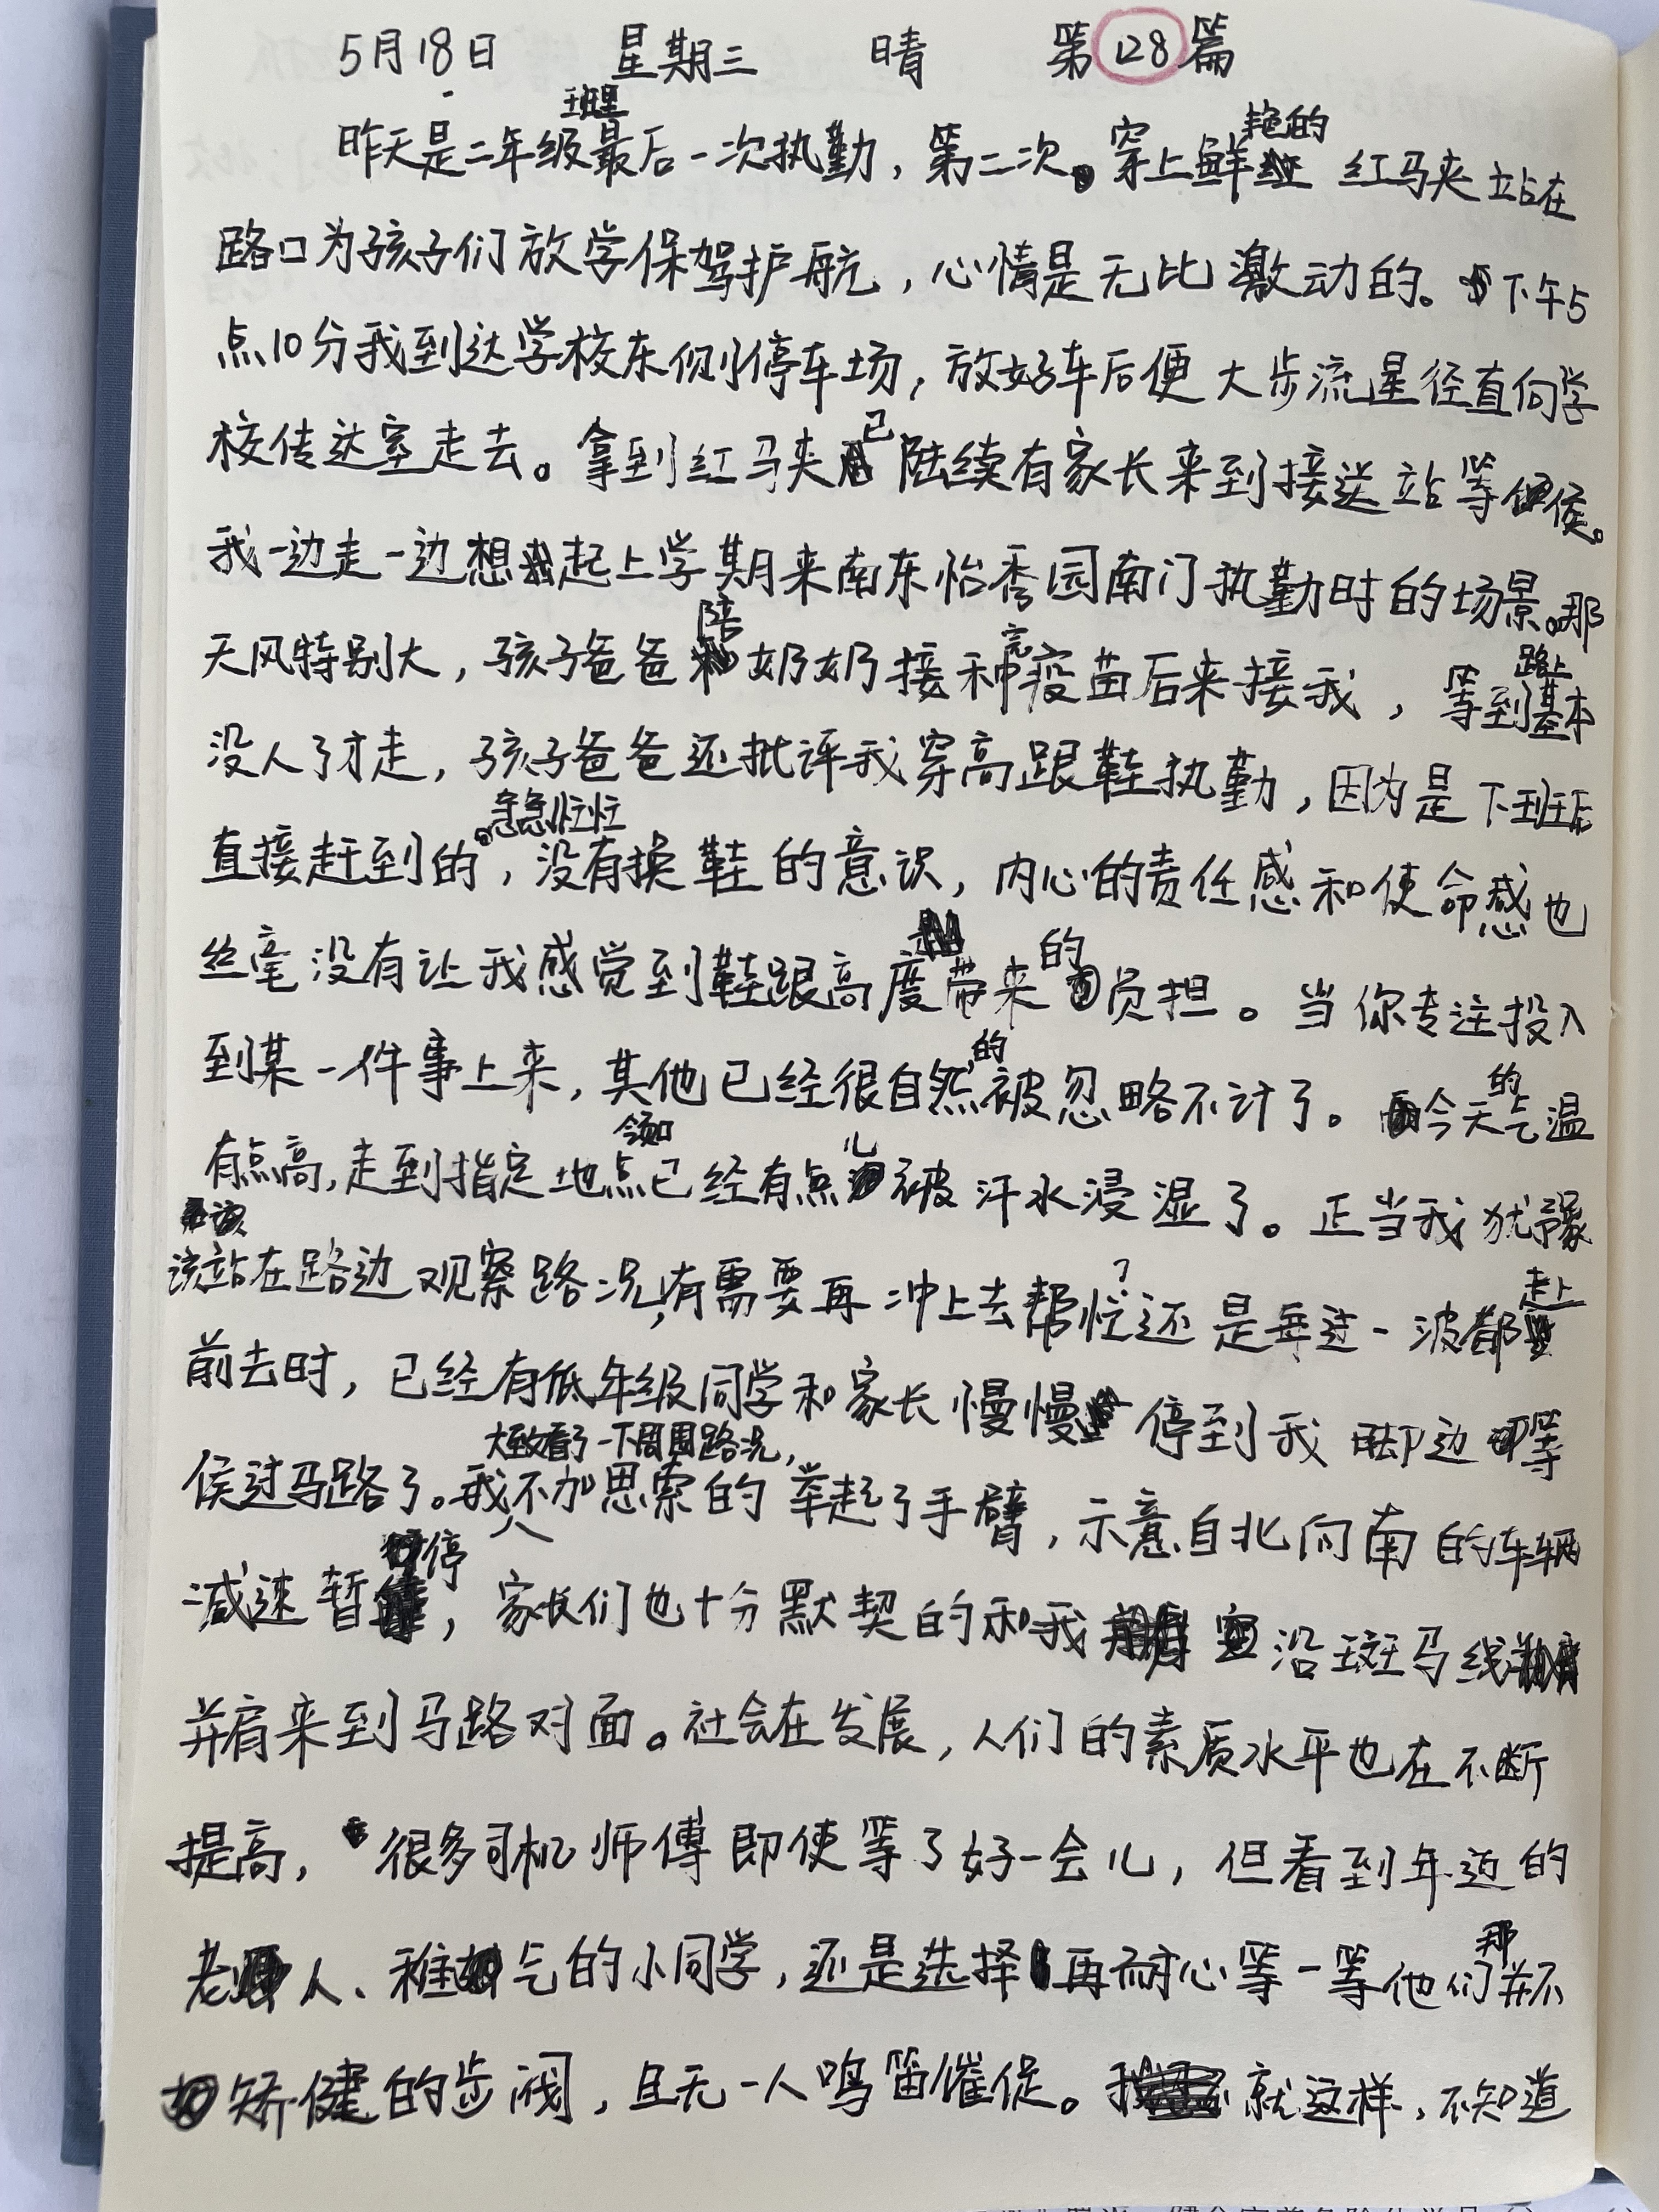 5月18日 星期三 晴 第128篇
昨天是二年级班里最后一次执勤，第二次。穿上鲜艳的红马夹站在
路口为孩子们放学保驾护航，心情是无比激动的。下午5
点10分我到达学校东侧停车场，放好车后便大步流星径直向学
校传达室走去。拿到红马夹已陆续有家长来到接送站等候。
我一边走一边想起上学期来南东怡秀园南门执勤时的场景。那
天风特别大，孩子爸爸陪奶奶接种完疫苗后来接我，等到路上基本
没人了才走，孩子爸爸还批评我穿高跟鞋执勤，因为是下班后
直接赶到的。急急忙忙，没有换鞋的意识，内心的责任感和使命感也
丝毫没有让我感觉到鞋跟高度带来的负担。当你专注投入
到某一件事上来，其他已经很自然的被忽略不计了。今天的气温
有点高，走到指定地点额头已经有点儿被汗水浸湿了。正当我犹豫
该站在路边观察路况，有需要再冲上去帮忙？还是每过一波都赶上
前去时，已经有低年级同学和家长慢慢停到我脚边等
侯过马路了。我大致看了一下周围路况，不加思索的举起了手臂，示意自北向南的车辆
减速暂停，家长们也十分默契的和我沿斑马线
并肩来到马路对面。社会在发展，人们的素质水平也在不断
提高，很多司机师傅即使等了好一会儿，但看到年迈的
老人、稚气的小同学，还是选择再耐心等一等他们那并不
矫健的步阀，且无一人鸣笛催促。就这样，不知道